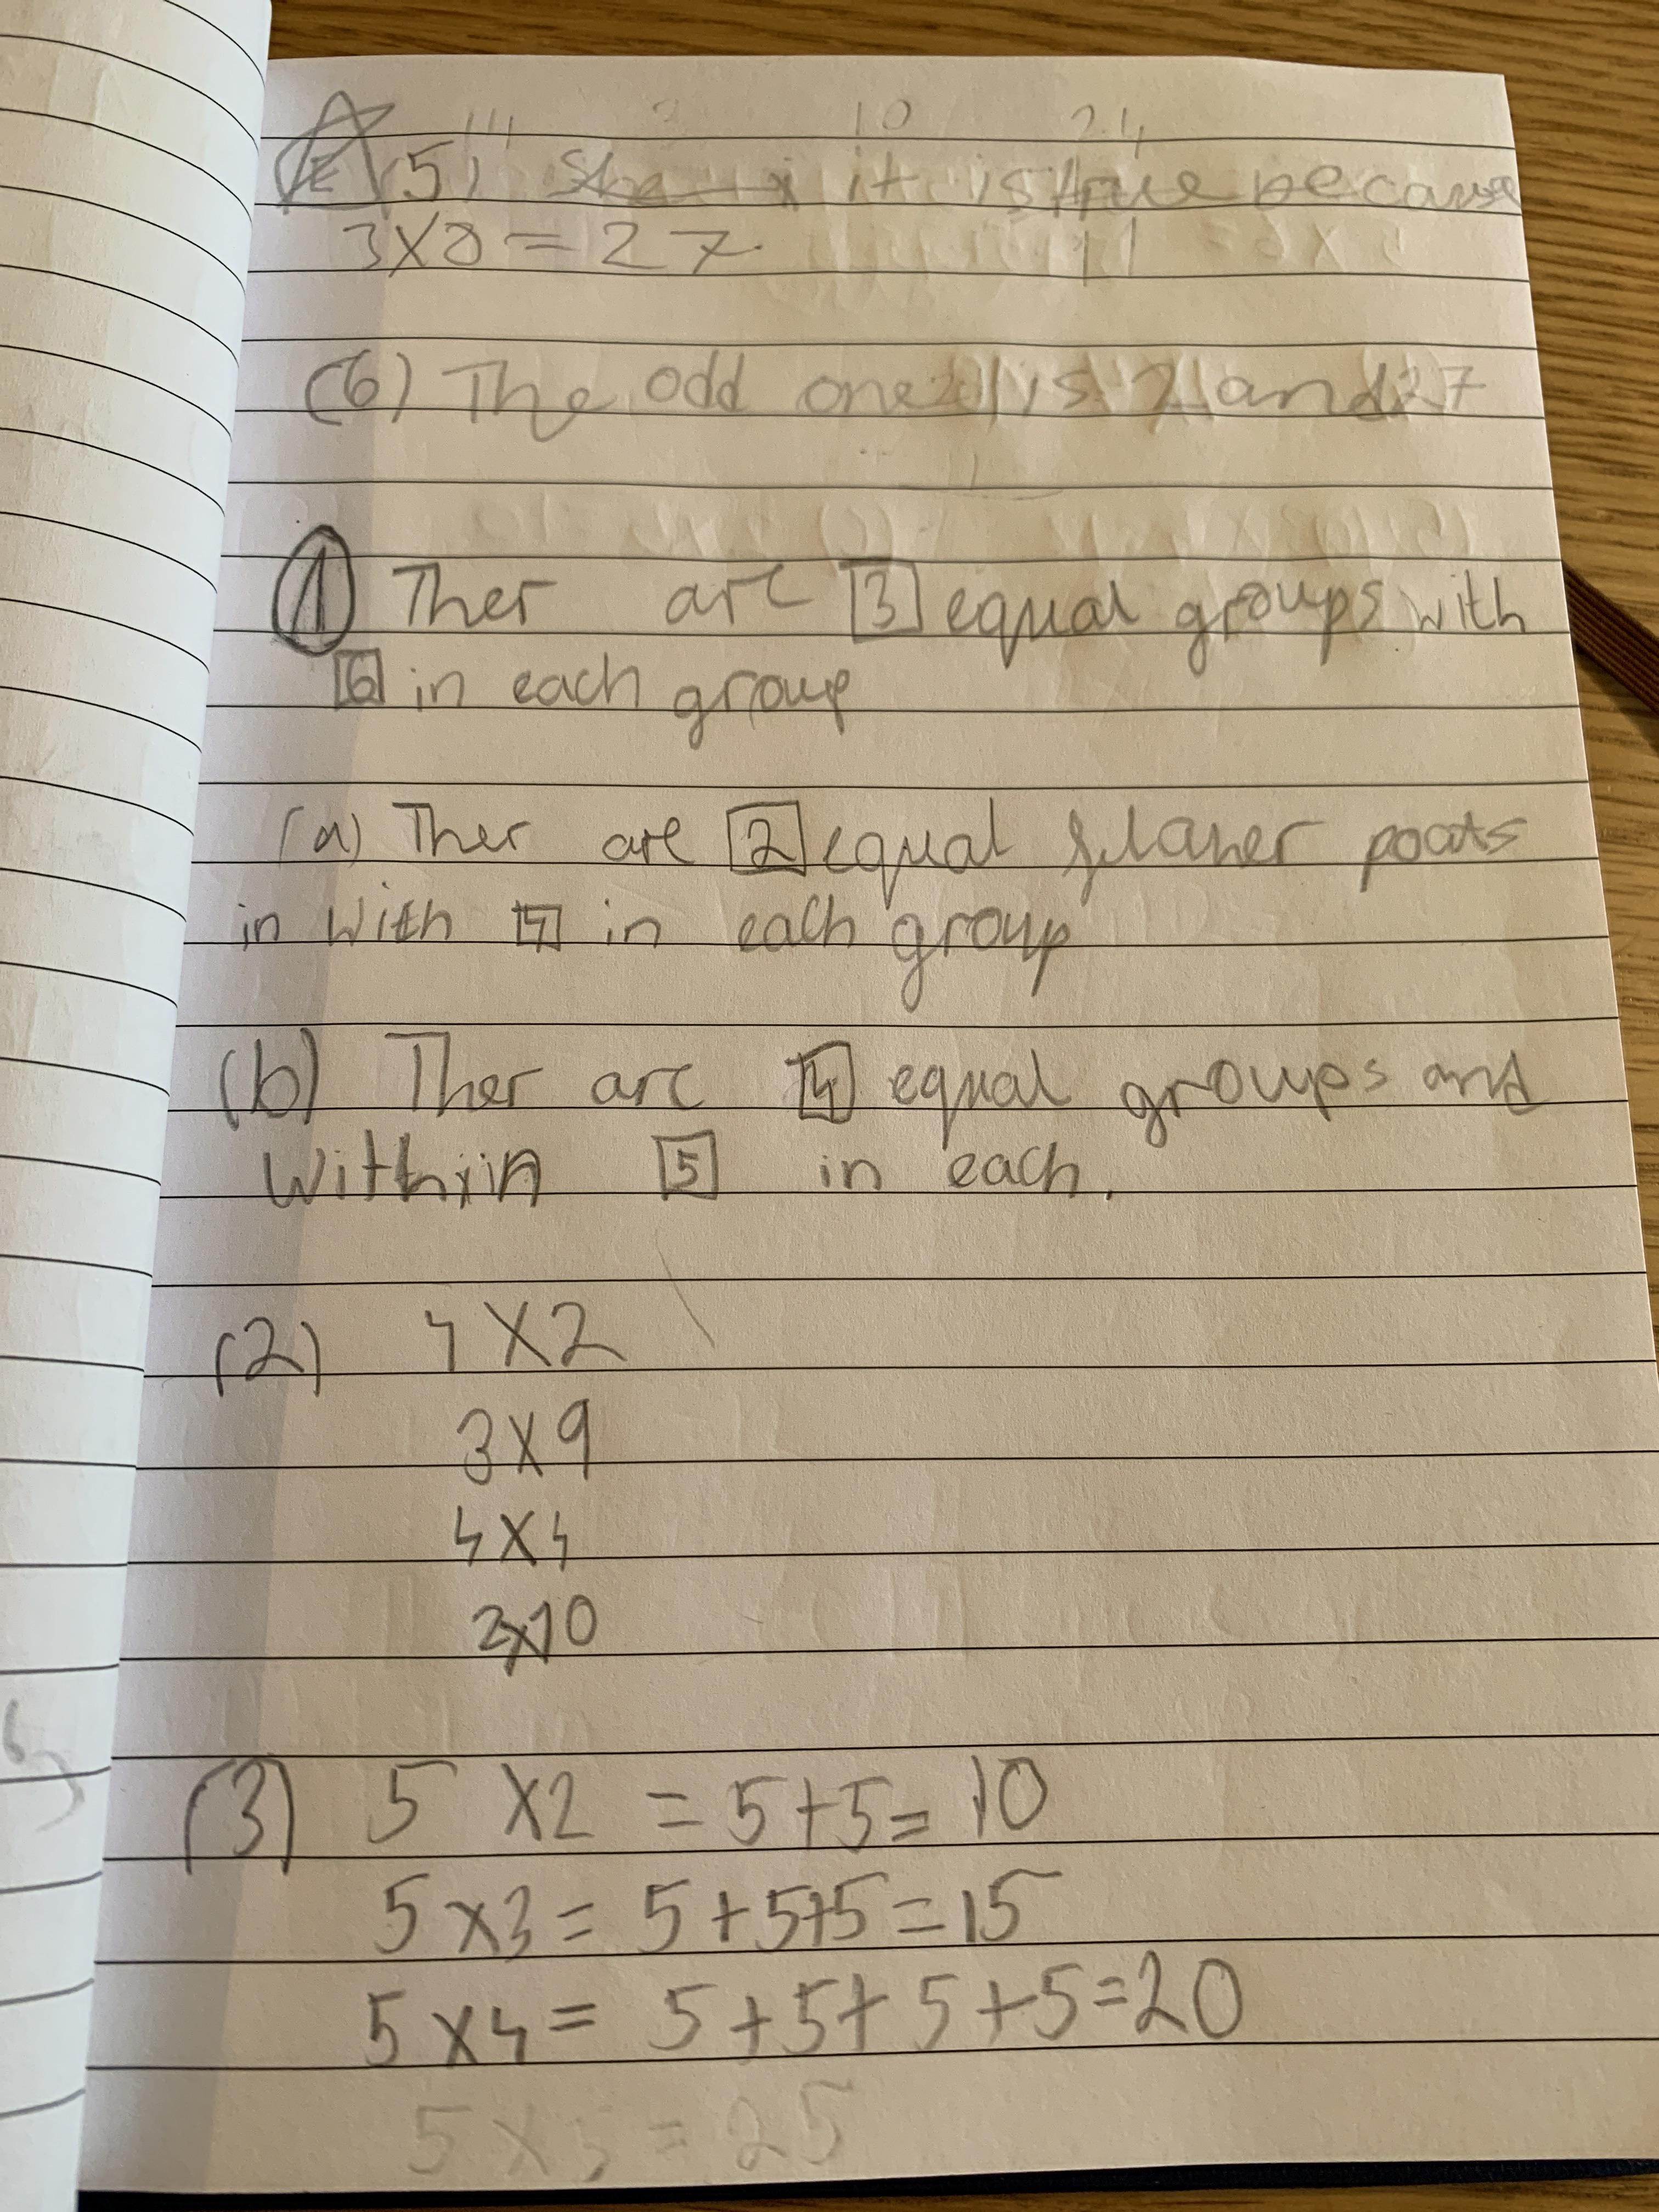 10 24
E (5) She x it is true because
3x8=27
(6) The odd one is 21 and 27
1 Ther are 3 equal groups with
6 in each group
(a) Ther are 2 equal flaner poats
in with 4 in each group
(b) Ther are 4 equal groups and
with in 5 in each.
(2) 4 x 2
3 x 9
4 x 4
2x10
(3) 5 x2 = 5+5= 10
5 x3 = 5+5+5=15
5 x4 = 5+5+5+5=20
5 x 5 = 25